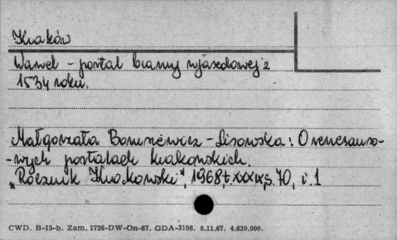 Kraków
Wawel - portal bramy wjazdowej z
1534 roku.
Małgorzata Borusiewicz-Lisowska: O renesanso-
-wych portalach krakowskich.
"Rocznik Krakowski", 1968, t. XXXIX, s. 70, i. 1
CWD. B-15-b. Zam. 1726-DW-On-67. GDA-3186. 8.11.67. 4.630.000.